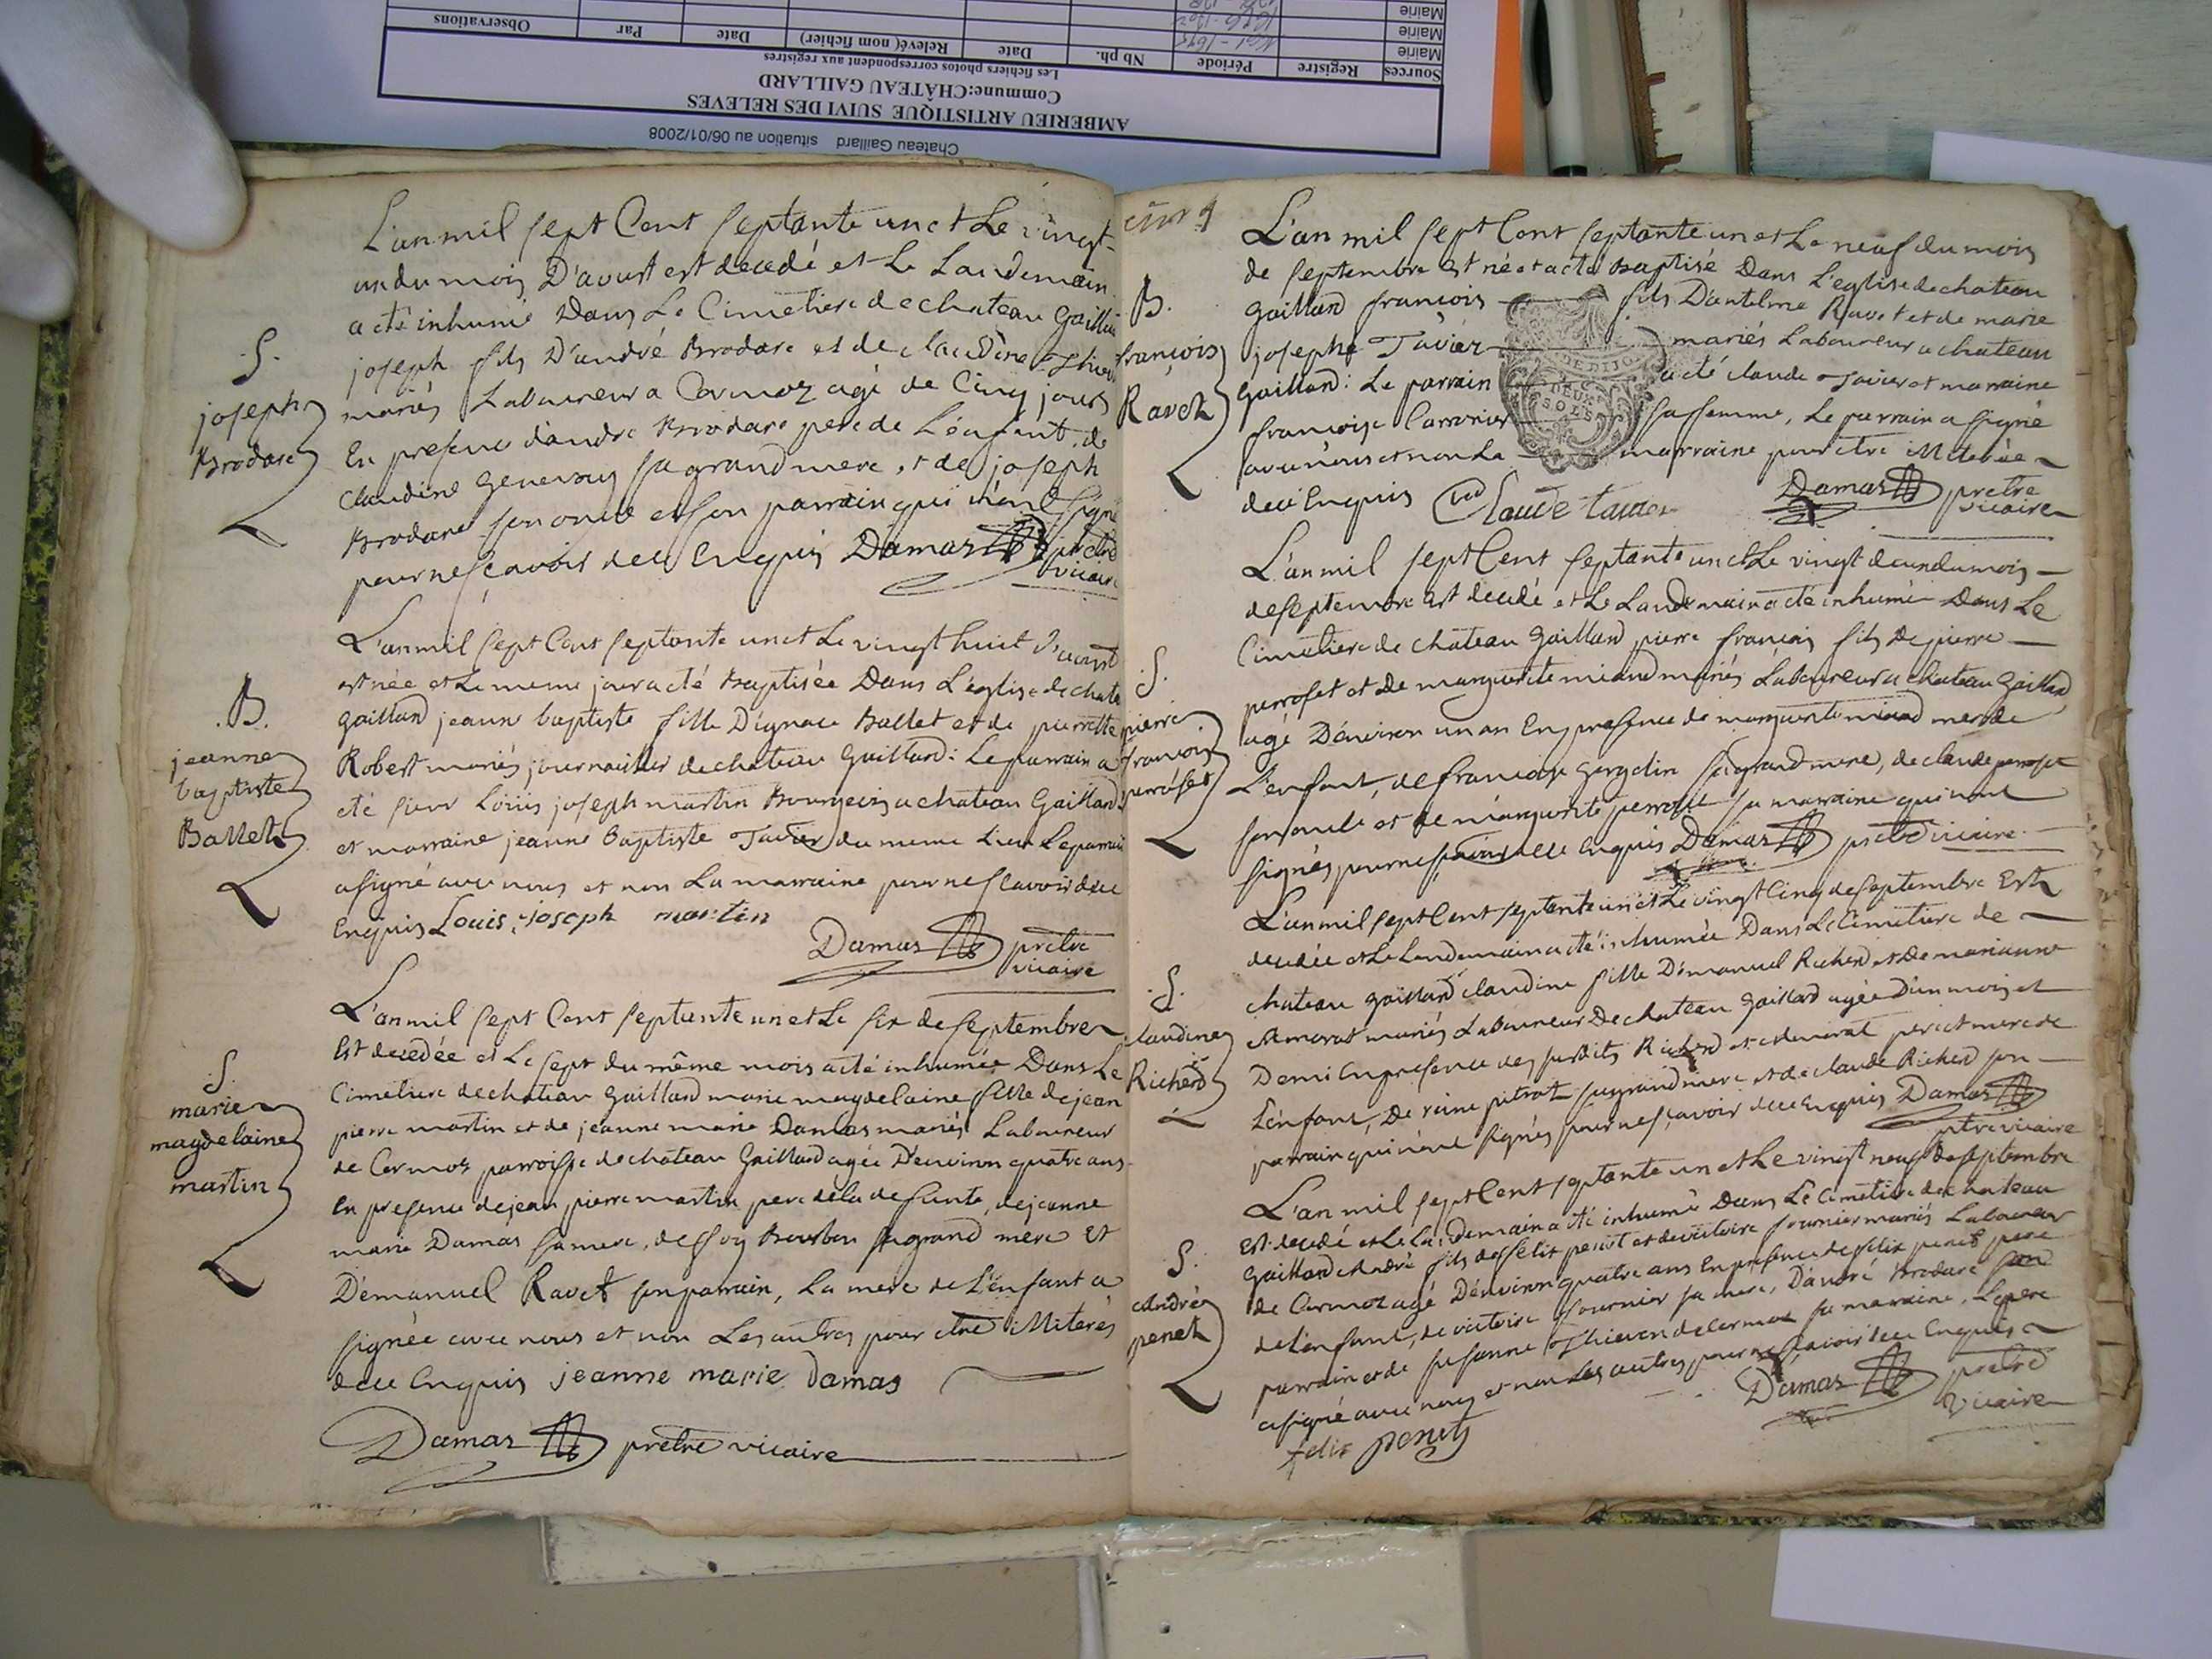 Chateau Gaillard situation au 06/01/2008
AMBERIEU ARTISTIQUE SUIVI DES RELEVES
Commune:CHÂTEAU GAILLARD
Les fichiers photos correspondent aux registres
Sources Registre Période Nb ph. Date Relevé( nom fichier) Date Par Observations
Mairie
Mairie
Mairie
L'an mil sept Cent septante un et Le vingt
un du mois D'avust est decedé et Le Landemain
a eté inhumé Dans Le Cimetiere de chateau Gaillard
joseph fils D'andré Brodare et de claudine
mariés Laboureur a Cormoz agé de Cinq jours
En presence d'andré Brodare pere de L'enfant, de
Claudine Genevay sa grand mere, et de joseph
Brodare son oncle et son parrain qui n'ont signé
pour ne sçavoir de ce Enquis Damas prêtre
vicaire
S.
joseph
Brodare
L'an mil sept Cent septante un et Le vingt huit D'avust
est née et Le meme jour a eté Baptisée Dans L'eglise de chateau
Gaillard jeanne baptiste fille D'ignace Ballet et de pierrette
Robert mariés journallier de chateau Gaillard: Le parrain a
eté sieur Loüis joseph martin Bourgeois a chateau Gaillard
et marraine jeanne Baptiste Tavier du meme Lieu Le parrain
a signé avec nous et non La marraine pour ne sçavoir de ce
Enquis Louis joseph martin
Damas prêtre
vicaire
B.
jeanne
baptiste
Ballet
L'an mil sept Cent septante un et Le six de septembre
Est decedée et Le sept du même mois a eté inhumée Dans Le
Cimetiere de chateau Gaillard marie magdelaine fille de jean
pierre martin et de jeanne marie Damas mariés Laboureur
de Cormoz parroisse de chateau Gaillard agée D'environ quatre ans
En presence de jean pierre martin pere de la defunte, de jeanne
marie Damas sa mere, de foy Bourbon sa grand mere Et
D'emanuel Ravet son parrain, La mere de L'enfant a
signée avec nous et non Les autres pour etre illiterés
de ce Enquis jeanne marie Damas
Damas prêtre vicaire
S.
marie
magdelaine
martin
L'an mil sept Cent septante un et Le neuf du mois
de septembre est né et a eté Baptisé Dans L'eglise de chateau
Gaillard françois fils D'antelme Ravet et de marie
josephe Tavier mariés Laboureur a chateau
Gaillard: Le parrain a eté claude Tavier et marraine
françoise Carronier sa femme, Le parrain a signé
avec nous et non La marraine pour etre illiterée
de ce Enquis Claude tavier Damas prêtre
vicaire
DE DIJO
DEUX
SOLS
B.
françois
Ravet
L'an mil sept Cent septante un et Le vingt deux du mois
de septembre est decedé et Le Landemain a eté inhumé Dans Le
Cimetiere de chateau Gaillard pierre françois fils de pierre
perroset et de marguerite miand mariés Laboureur a chateau Gaillard
agé D'environ un an En presence de marguerite miand mere de
L'enfant, de françoise Gergolin sa grand mere, de claude perroset
son oncle et de marguerite perroset sa marraine qui n'ont
signés pour ne sçavoir de ce Enquis Damas prêtre vicaire
S.
pierre
françois
perroset
L'an mil sept Cent septante un et Le vingt Cinq de septembre Est
decedée et Le Landemain a eté inhumée Dans Le Cimetiere de
chateau Gaillard claudine fille D'emanuel Richerd et de marianne
mariés Laboureur De chateau Gaillard agée D'un mois et
Demi En presence des susdits Richerd et pere et mere de
L'enfant, De reine pitrat sa grand mere et de claude Richerd son
parrain qui n'ont signés pour ne sçavoir de ce Enquis Damas
ptre vicaire
S.
claudine
Richerd
L'an mil sept Cent septante un et Le vingt neuf de septembre
Est decedé et Le Landemain a eté inhumé Dans Le Cimetiere de chateau
Gaillard André fils de felix penet et de victoire fournier mariés Laboureur
de Cormoz agé D'environ quatre ans En presence de felix penet pere
de L'enfant, de victoire fournier sa mere, D'andré Brodare son
parrain et de susanne de Cormoz sa marraine, Le pere
a signé avec nous et non Les autres pour ne sçavoir de ce Enquis
felix penet Damas prêtre
vicaire
S.
André
penet